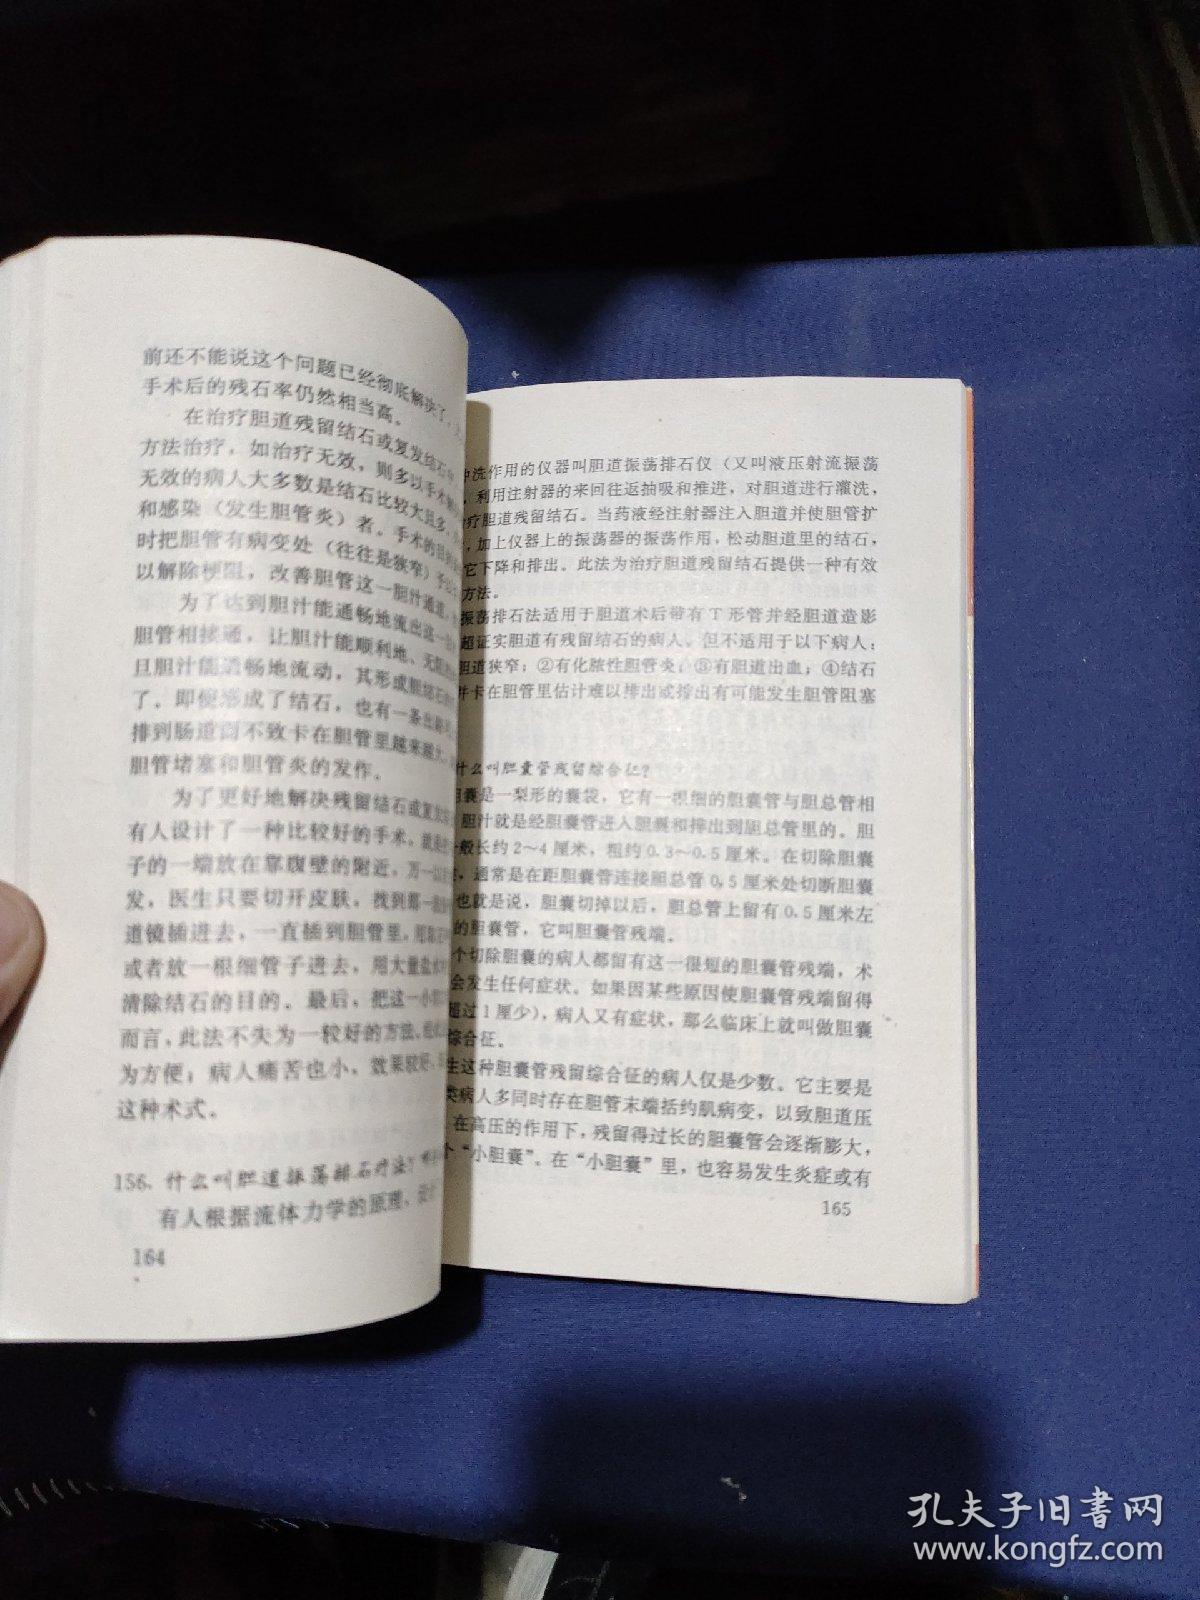 前还不能说这个问题已经彻底解决了,
手术后的残石率仍然相当高。
在治疗胆道残留结石或复发结石中
方法治疗，如治疗无效，则多以手术
无效的病人大多数是结石比较大且多
和感染（发生胆管炎）者。手术的目的
时把胆管有病变处（往往是狭窄）予以
以解除梗阻，改善胆管这一胆汁通道
为了达到胆汁能通畅地流出这一
胆管相接通，让胆汁能顺利地、无阻
且胆汁能通畅地流动，其形成胆结石的
了。即使形成了结石，也有一条出路
排到肠道而不致卡在胆管里越来越大
胆管堵塞和胆管炎的发作。
为了更好地解决残留结石或复发
有人设计了一种比较好的手术，就是
子的一端放在靠腹壁的附近，万一
发，医生只要切开皮肤，找到那一
道镜插进去，一直插到胆管里，用
或者放一根细管子进去，用大量盐水
清除结石的目的。最后，把这一小
而言，此法不失为一较好的方法，
为方便；病人痛苦也小，效果较好，
这种术式。
156. 什么叫胆道振荡排石疗法？
有人根据流体力学的原理，设
164
冲洗作用的仪器叫胆道振荡排石仪（又叫液压射流振荡
，利用注射器的来回往返抽吸和推进，对胆道进行灌洗，
治疗胆道残留结石。当药液经注射器注入胆道并使胆管扩
，加上仪器上的振荡器的振荡作用，松动胆道里的结石，
它下降和排出。此法为治疗胆道残留结石提供一种有效
方法。
振荡排石法适用于胆道术后带有T形管并经胆道造影
超证实胆道有残留结石的病人。但不适用于以下病人：
胆道狭窄；②有化脓性胆管炎；③有胆道出血；④结石
并卡在胆管里估计难以排出或排出有可能发生胆管阻塞
什么叫胆囊管残留综合征？
胆囊是一梨形的囊袋，它有一根细的胆囊管与胆总管相
胆汁就是经胆囊管进入胆囊和排出到胆总管里的。胆
一般长约2～4厘米，粗约0.3～0.5厘米。在切除胆囊
，通常是在距胆囊管连接胆总管0.5厘米处切断胆囊
也就是说，胆囊切掉以后，胆总管上留有0.5厘米左
的胆囊管，它叫胆囊管残端。
个切除胆囊的病人都留有这一很短的胆囊管残端，术
会发生任何症状。如果因某些原因使胆囊管残端留得
超过1厘少），病人又有症状，那么临床上就叫做胆囊
综合征。
生这种胆囊管残留综合征的病人仅是少数。它主要是
类病人多同时存在胆管末端括约肌病变，以致胆道压
在高压的作用下，残留得过长的胆囊管会逐渐膨大，
个“小胆囊”。在“小胆囊”里，也容易发生炎症或有
165
孔夫子旧书网
www.kongfz.com